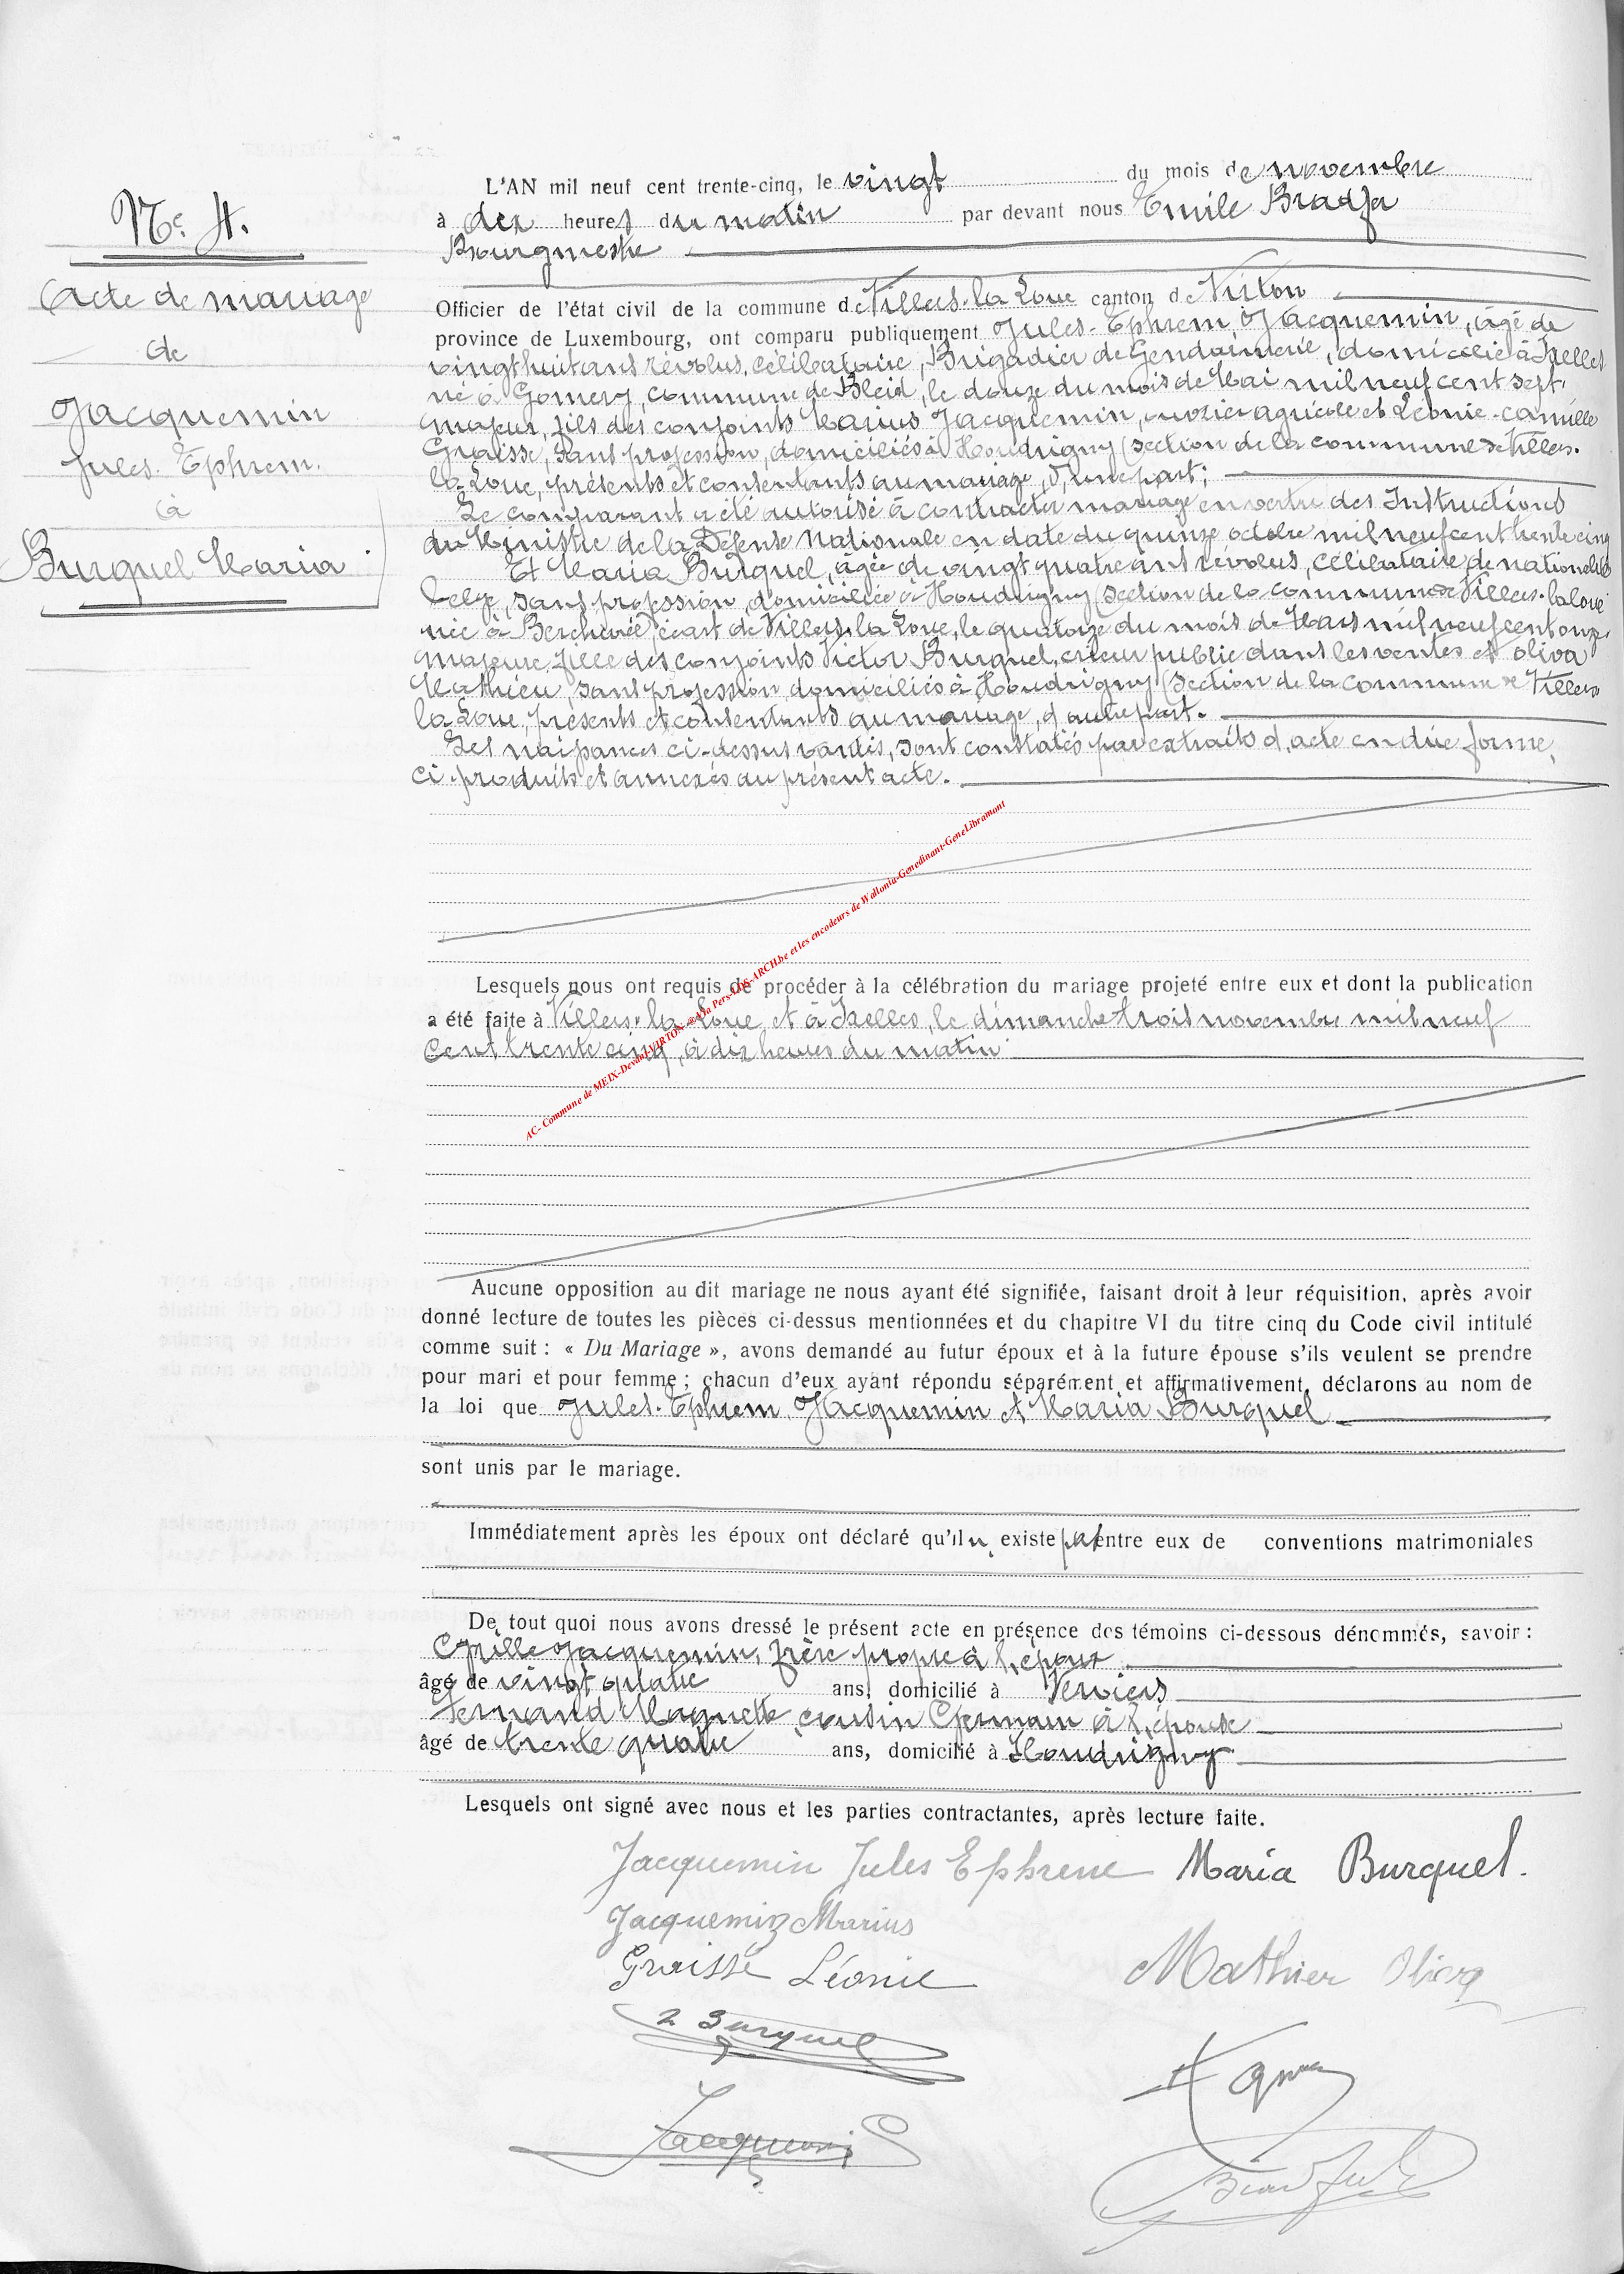 N° 4.
Acte de mariage
de
Jacquemin
Jules-Ephrem.
à
Burquel Maria.
L'AN mil neuf cent trente-cinq, le vingt du mois de novembre
à dix heures du matin par devant nous Emile Bradfer
Bourgmestre
Officier de l'état civil de la commune de Villers-la-Loue canton de Virton
province de Luxembourg, ont comparu publiquement Jules-Ephrem Jacquemin, âgé de
vingt huit ans révolus, célibataire, Brigadier de Gendarmerie, domicilié à Ixelles
né à Gomery, commune de Bleid, le douze du mois de Mai mil neuf cent sept,
majeur, fils des conjoints Marius Jacquemin, ouvrier agricole et Léonie-Camille
Graisse, sans profession, domiciliés à Houdrigny (section de la commune de Villers-
la-Loue, présents et consentants au mariage, d'une part;
Le comparant a été autorisé à contracter mariage en vertu des Instructions
du Ministre de la Défense Nationale en date du quinze octobre mil neuf cent trente cinq
Et Maria Burquel, âgée de vingt quatre ans révolus, célibataire de nationalité
belge, sans profession, domiciliée à Houdrigny (section de la commune de Villers-la Loue
née à Berchivée, écart de Villers-la Loue, le quatorze du mois de Mars mil neuf cent onze,
majeure, fille des conjoints Victor Burquel, crieur public dans les ventes et Oliva
Mathieu, sans profession, domiciliés à Houdrigny (section de la commune de Villers
la Loue, présents et consentants au mariage, d'autre part.
Les naissances ci-dessus sont constatés par extraits d'acte en due forme,
ci-produits et annexés au présent acte.
Lesquels nous ont requis de procéder à la célébration du mariage projeté entre eux et dont la publication
a été faite à Villers-la-Loue et à Ixelles, le dimanche trois novembre mil neuf
cent trente cinq, à dix heures du matin
AC- Commune de MEIX-Devant-VIRTON - @ASa Pers-LDS-ARCH.be et les encodeurs de Wallonia-Genedinant-GeneLibramont
Aucune opposition au dit mariage ne nous ayant été signifiée, faisant droit à leur réquisition, après avoir
donné lecture de toutes les pièces ci-dessus mentionnées et du chapitre VI du titre cinq du Code civil intitulé
comme suit : « Du Mariage », avons demandé au futur époux et à la future épouse s'ils veulent se prendre
pour mari et pour femme ; chacun d'eux ayant répondu séparément et affirmativement, déclarons au nom de
la loi que Jules-Ephrem Jacquemin et Maria Burquel
sont unis par le mariage.
Immédiatement après les époux ont déclaré qu'il n' existe pas entre eux de conventions matrimoniales
De tout quoi nous avons dressé le présent acte en présence des témoins ci-dessous dénommés, savoir :
Cyrille Jacquemin, frère propre à l'époux
âgé de vingt quatre ans, domicilié à Verviers
Fernand Maquette cousin Germain à l'épouse
âgé de trente quatre ans, domicilié à Houdrigny
Lesquels ont signé avec nous et les parties contractantes, après lecture faite.
Jacquemin Jules Ephrem Maria Burquel.
Jacquemin Marius
Graisse Léonie Mathieu Oliva
Burquel
Jacquemin
Bradfer